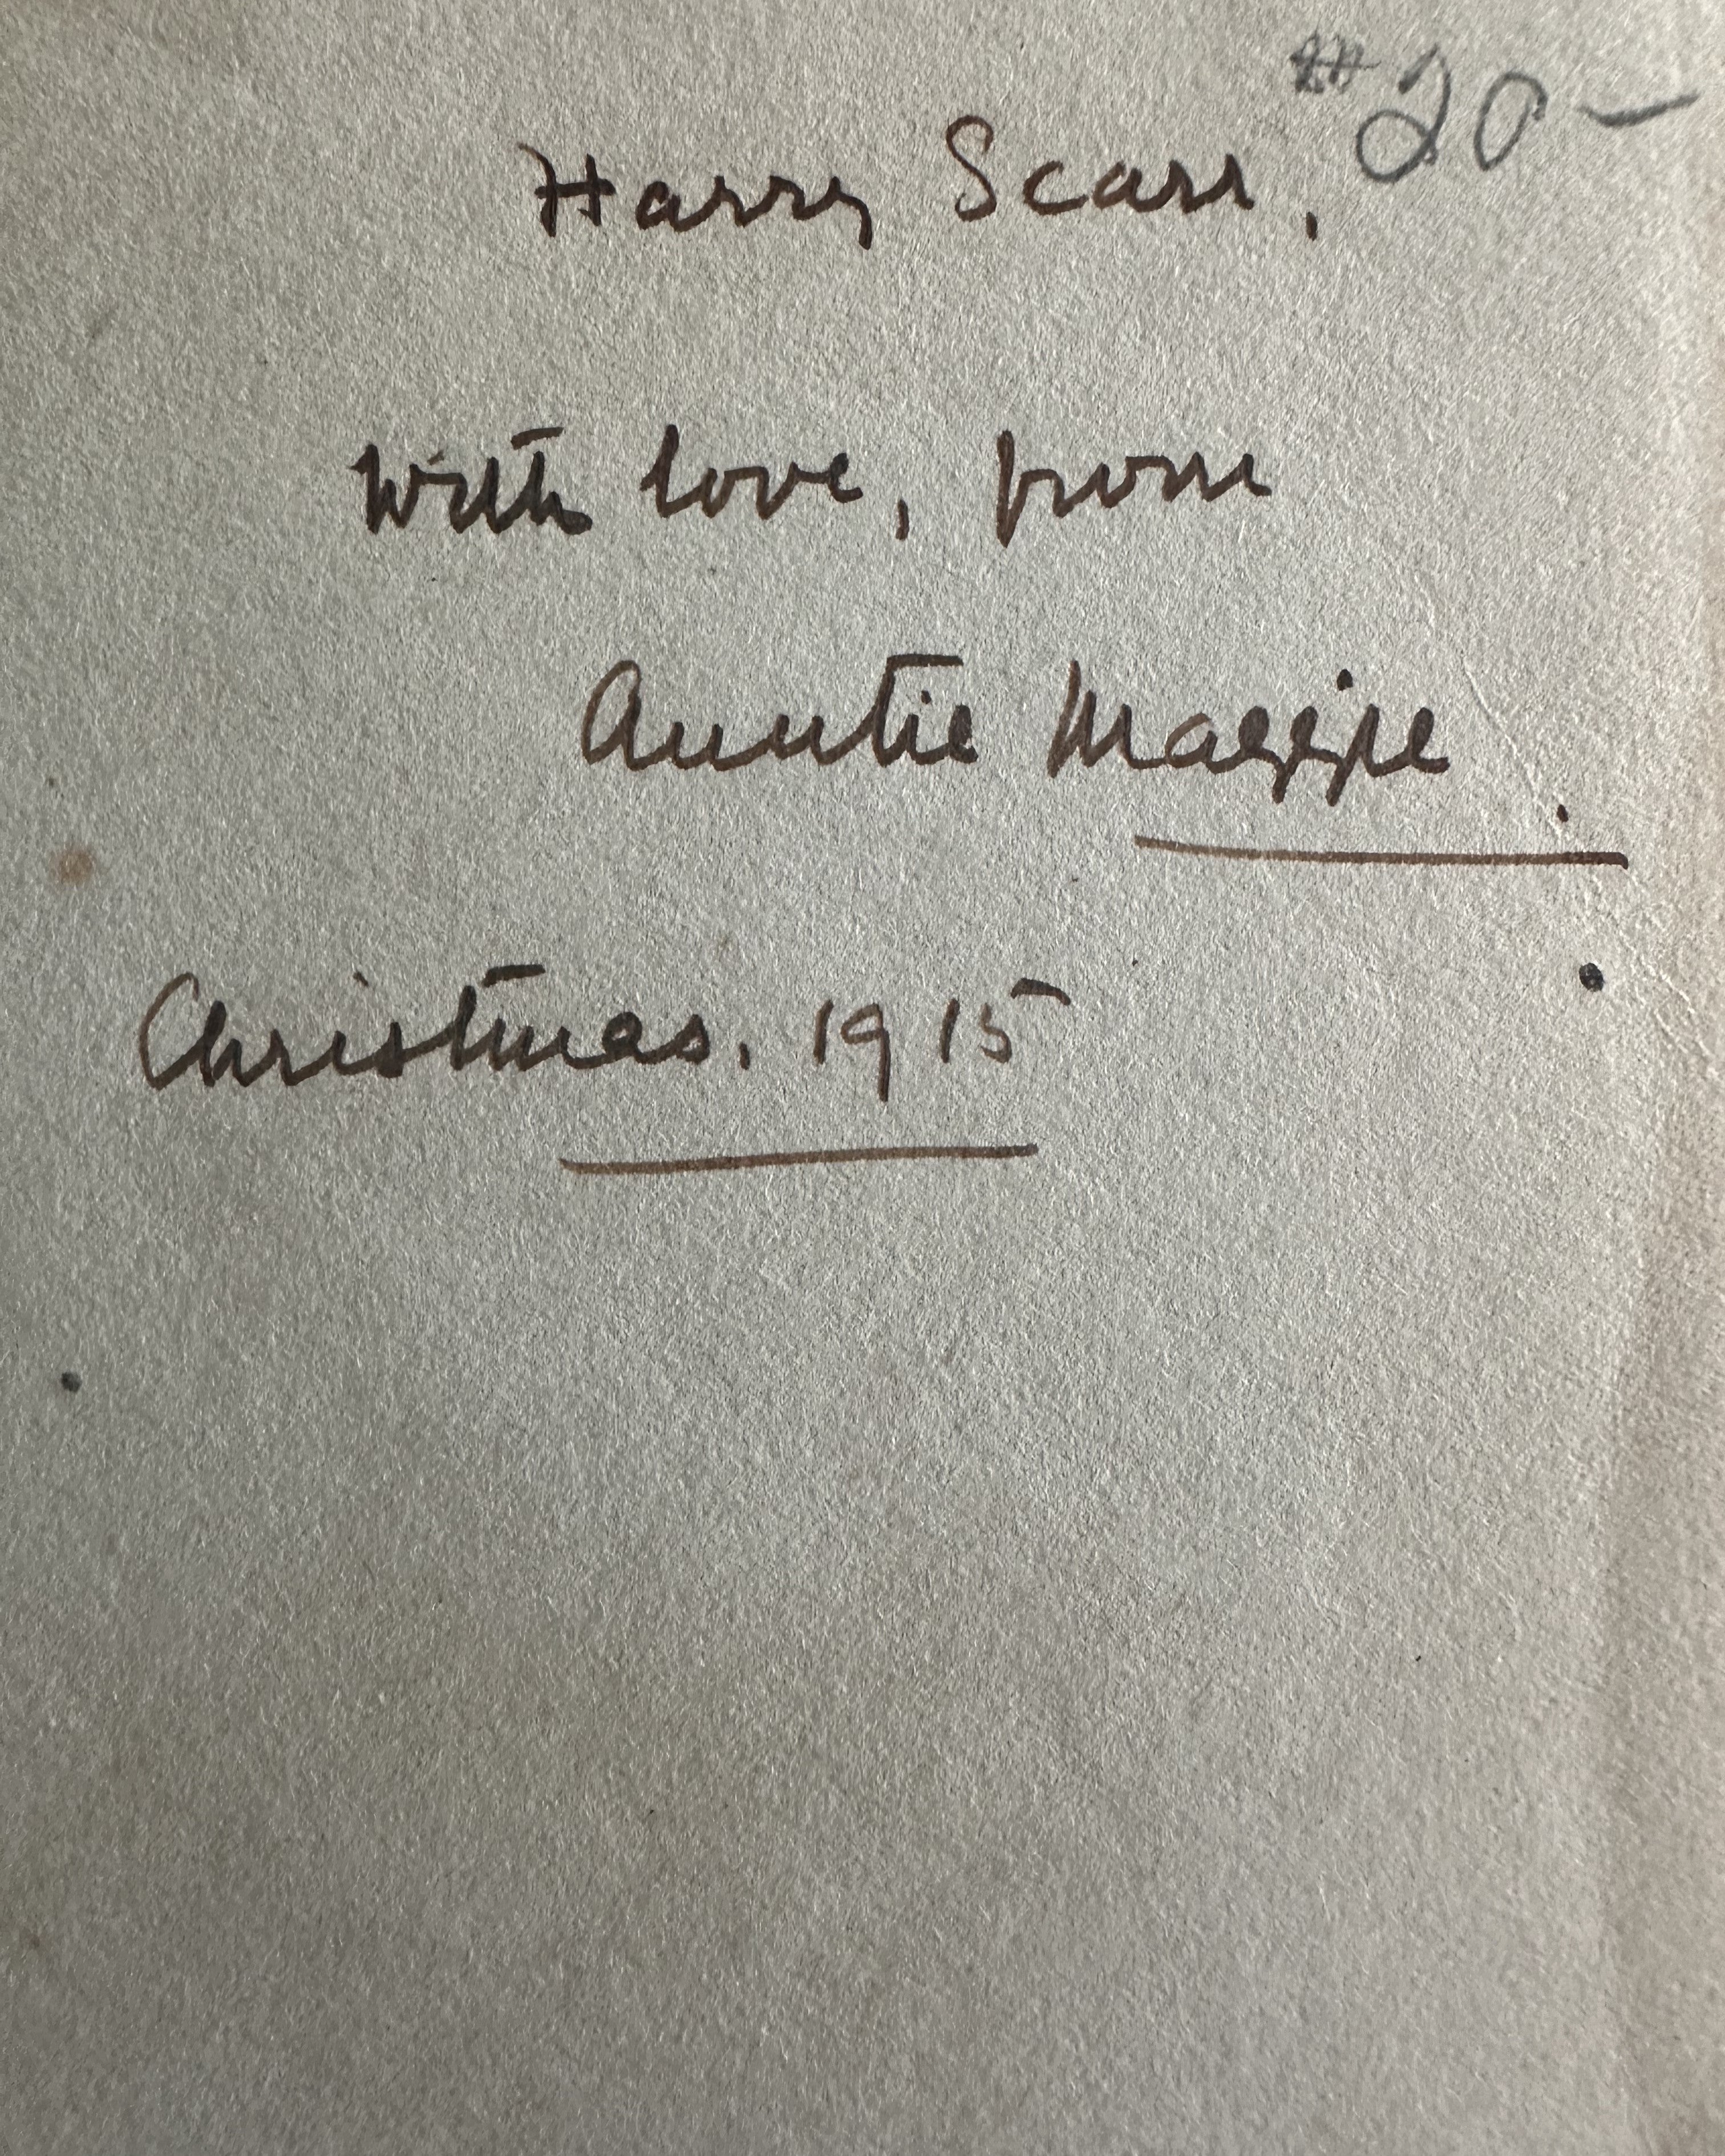 #20-
Harry Scarr,
With love, from
Auntie Maggie.
Christmas. 1915